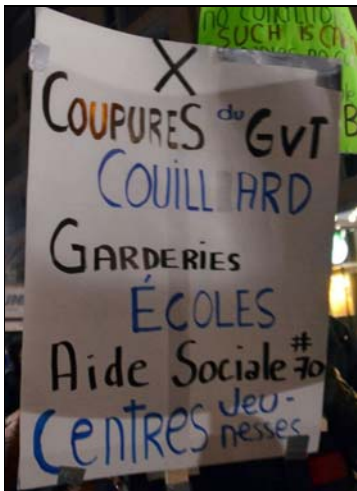 NO
SUCH IS
X
COUPURES du GVT
COUILLARD
GARDERIES
ÉCOLES
Aide Sociale #70
Centres Jeu-
nesses